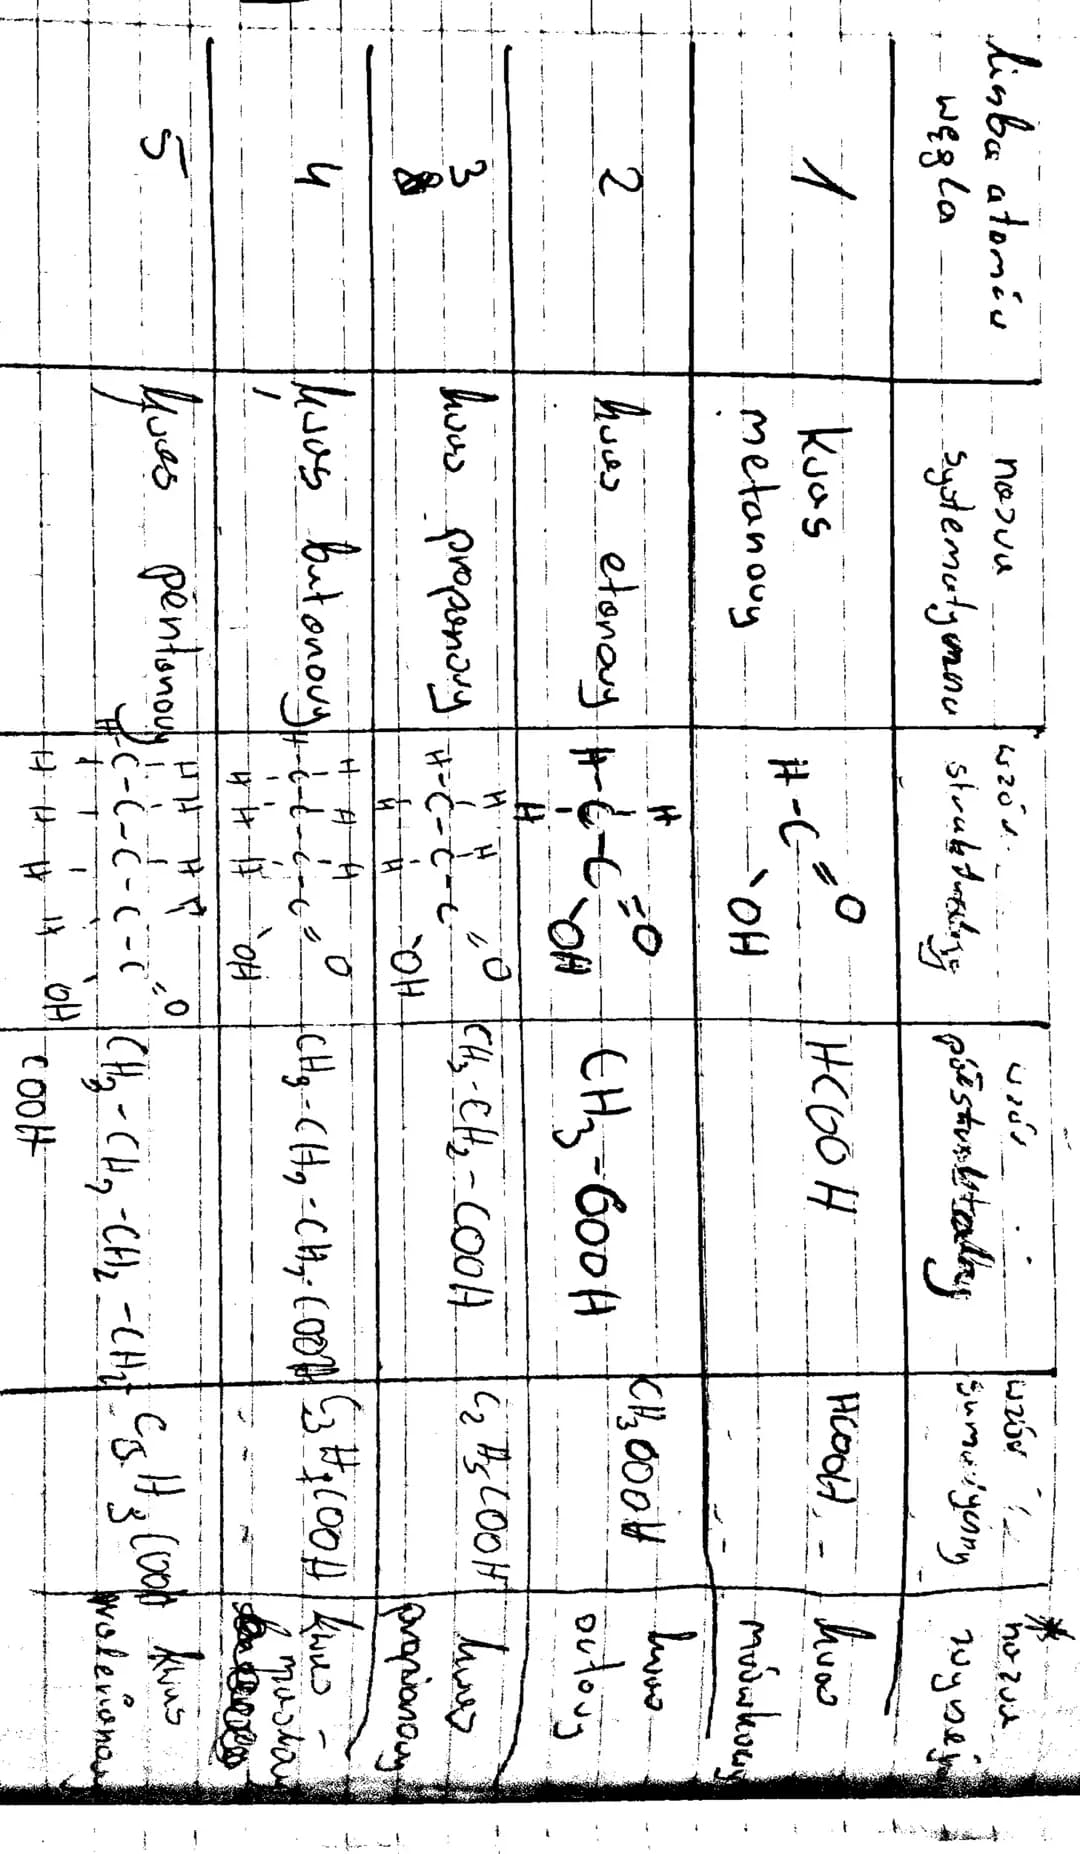 liczba atomów
węgla
nazwa
systematyczna
wzór
strukturalny
wzór
półstrukturalny
wzór
sumaryczny
* nazwa
zwyczaj
1
Kwas
metanowy
H-C=O
OH
HCOOH
HCOOH
kwas
mrówkowy
2
kwas etanowy
H
H-C-C=O
H
OH
CH3-COOH
CH3COOH
kwas
octowy
3
kwas propanowy
H H
H-C-C-C=O
H H
OH
CH3-CH2-COOH
C2H5COOH
kwas
propionowy
4
kwas butanowy
H H H
H-C-C-C-C=O
H H H
OH
CH3-CH2-CH2-COOH
C3H7COOH
kwas
masłow
5
kwas pentanowy
H H H H
H-C-C-C-C-C=O
H H H H
OH
CH3-CH2-CH2-CH2-
COOH
kwas
walerianow